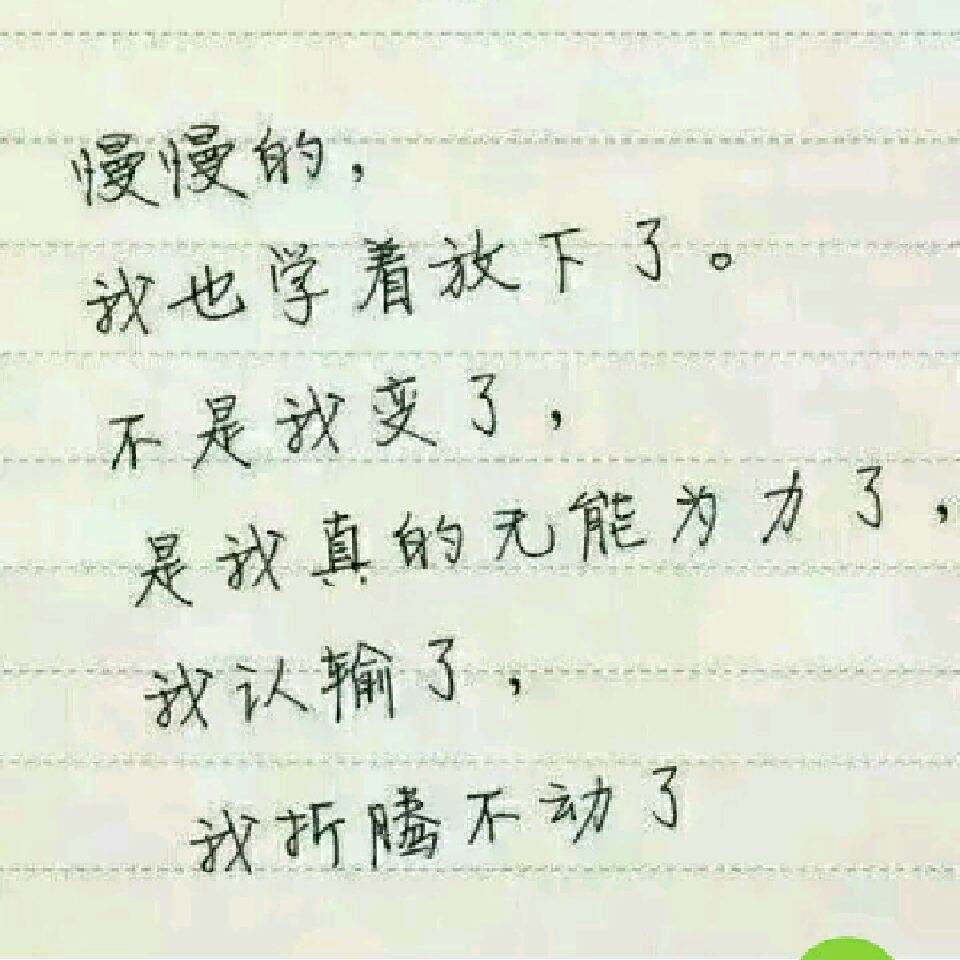 慢慢的，
我也学着放下了。
不是我变了，
是我真的无能为力了，
我认输了，
我折腾不动了